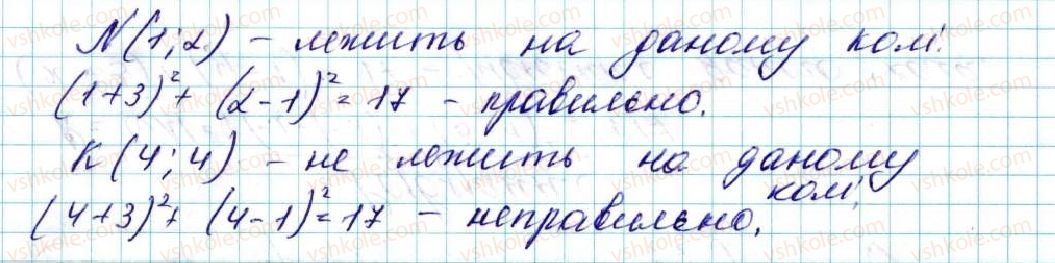 N(1;2) - лежить на даному колі.
(1+3)²+ (2-1)²=17 - правильно.
K(4;4) - не лежить на даному
колі.
(4+3)²+ (4-1)²=17 - неправильно.